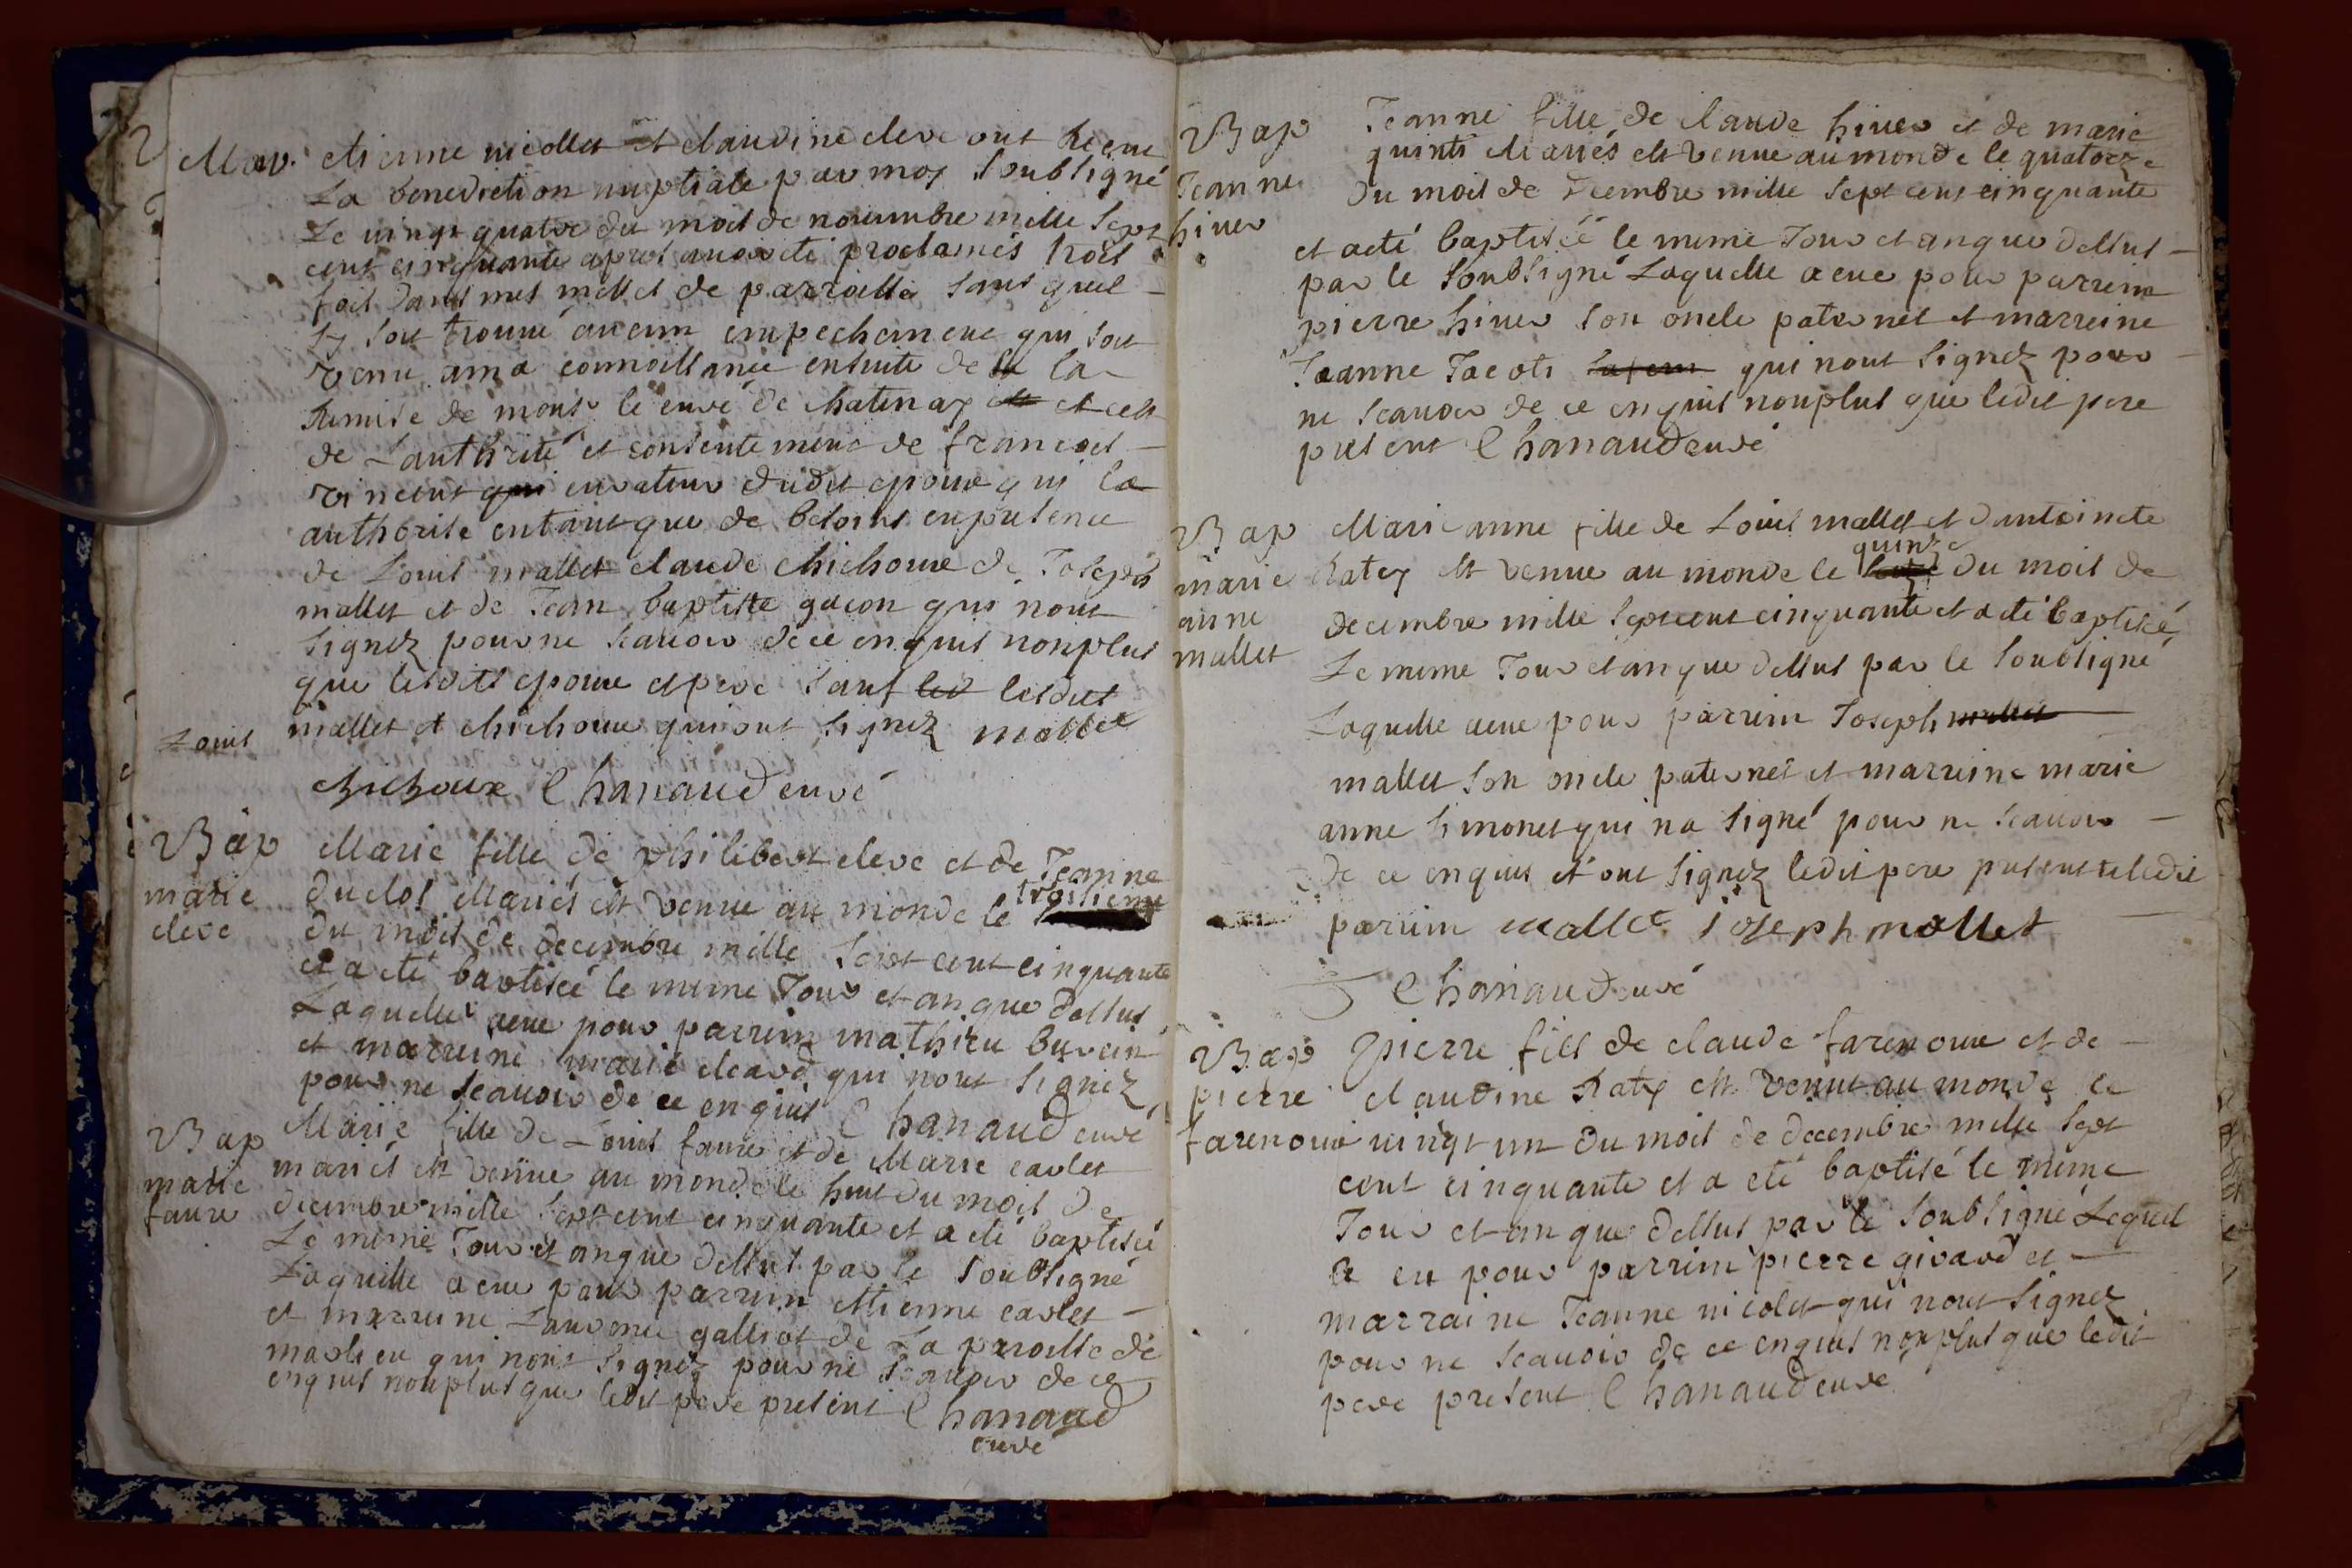 Mar. etienne nicollet et claudine clere ont receu
La benediction nuptiale par moy soubsigné
Le vingt quatre du mois de nouembre mille sept
cent cinquante apres auoir eté proclamés trois
fois dans mes messes de parroisse sans quil
sy soit trouué aucun empechement qui soit
venu a ma connoissance ensuite de la
remise de monsr le curé de chatenay et cest
de Lauthrité et consentement de francois
vincent qui curateur dudit epoux qui la
authorisé entant que de besoins en presence
de Louis mallet claude chichoux de Joseph
mallet et de Jean baptiste gacon qui nont
signez pour ne scauoir de ce enquis nonplus
que lesdits epoux et pere sauf led lesdits
mallet et chichoux qui ont signez mallet
Louis
chichoux Chanaud curé
Bap
marie
clere
Marie fille de philibert clere et de Jeanne
duclos Mariés est venue au monde le troisieme
du mois de decembre mille sept cent cinquante
et a eté baptisée le meme Jour et an que dessus
Laquelle a eue pour parrein mathieu
et marreine marie qui nont signez
pour ne scauoir de ce enquis Chanaud curé
Bap
marie
faure
Marie fille de Louis faure et de Marie carlet
mariés est venüe au monde le huit du mois de
decembre mille sept cent cinquante et a eté baptisée
Le meme Jour et an que dessus par le soubsigné
Laquelle a eue pour parrein ettienne carlet
et marreine Laurence galliot de La paroisse de
marlieu qui nont signez pour ne scauoir de ce
enquis nonplus que ledit pere present Chanaud
curé
Bap
Jeanne
hiuer
Jeanne fille de claude hiuer et de marie
quinti Mariés est venue au monde le quatorze
du mois de decembre mille sept cent cinquante
et a eté baptisée le meme Jour et an que dessus
par le soubsigné Laquelle a eue pour parrein
pierre hiuer son oncle paternel et marreine
Jeanne Jacoti qui nont signez pour
ne scauoir de ce enquis nonplus que ledit pere
present Chanaud curé
Bap
marie
anne
mallet
Marie anne fille de Louis mallet et dantoinete
Raty est venue au monde le quinze du mois de
decembre mille sept cent cinquante et a eté baptisée
Le meme Jour et an que dessus par le soubsigné
Laquelle a eue pour parrein Joseph mallet
mallet son oncle paternel et marreine marie
anne simonet qui na signé pour ne scauoir
de ce enquis et ont signez ledit pere present et ledit
parrein mallet ioseph mallet
Chanaud curé
Bap
pierre
farenoux
pierre fils de claude farenoux et de
claudine Raty est venut au monde le
vingt un du mois de decembre mille sept
cent cinquante et a eté baptisé le meme
Jour et an que dessus par le soubsigné Lequel
a eu pour parrein pierre girard et
marraine Jeanne nicolet qui nont signez
pour ne scauoir de ce enquis nonplus que ledit
pere present Chanaud curé